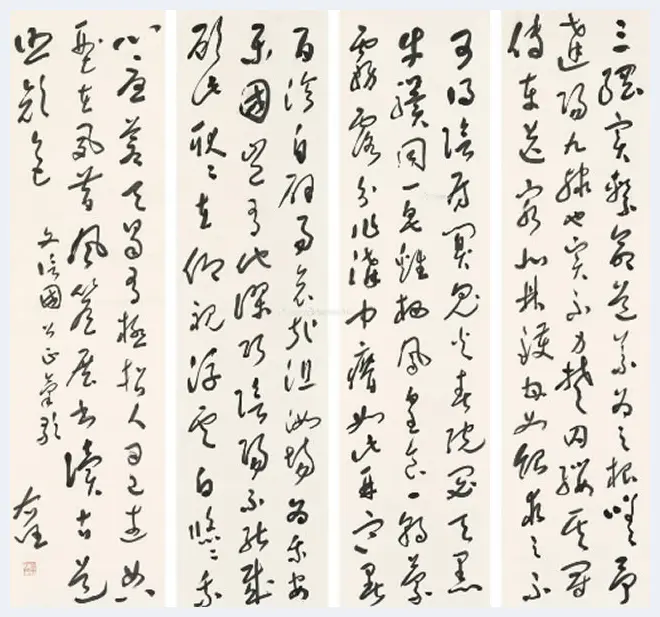 三綱實繫命道義為之根嗟予
遘陽九隸也實不力楚囚纓其冠
傳車送窮北鼎鑊甘如飴求之不
可得陰房闃鬼火春院閟天黑
牛驥同一皂雞栖鳳皇食一朝蒙
霧露分作溝中瘠如此再寒暑
百沴自辟易哀哉沮洳場為我安
樂國豈有他謬巧陰陽不能賊
顧此耿耿在仰視浮雲白悠悠我
心悲蒼天曷有極哲人日已遠典
型在夙昔風簷展書讀古道
照顏色
文信國公正氣歌
右任